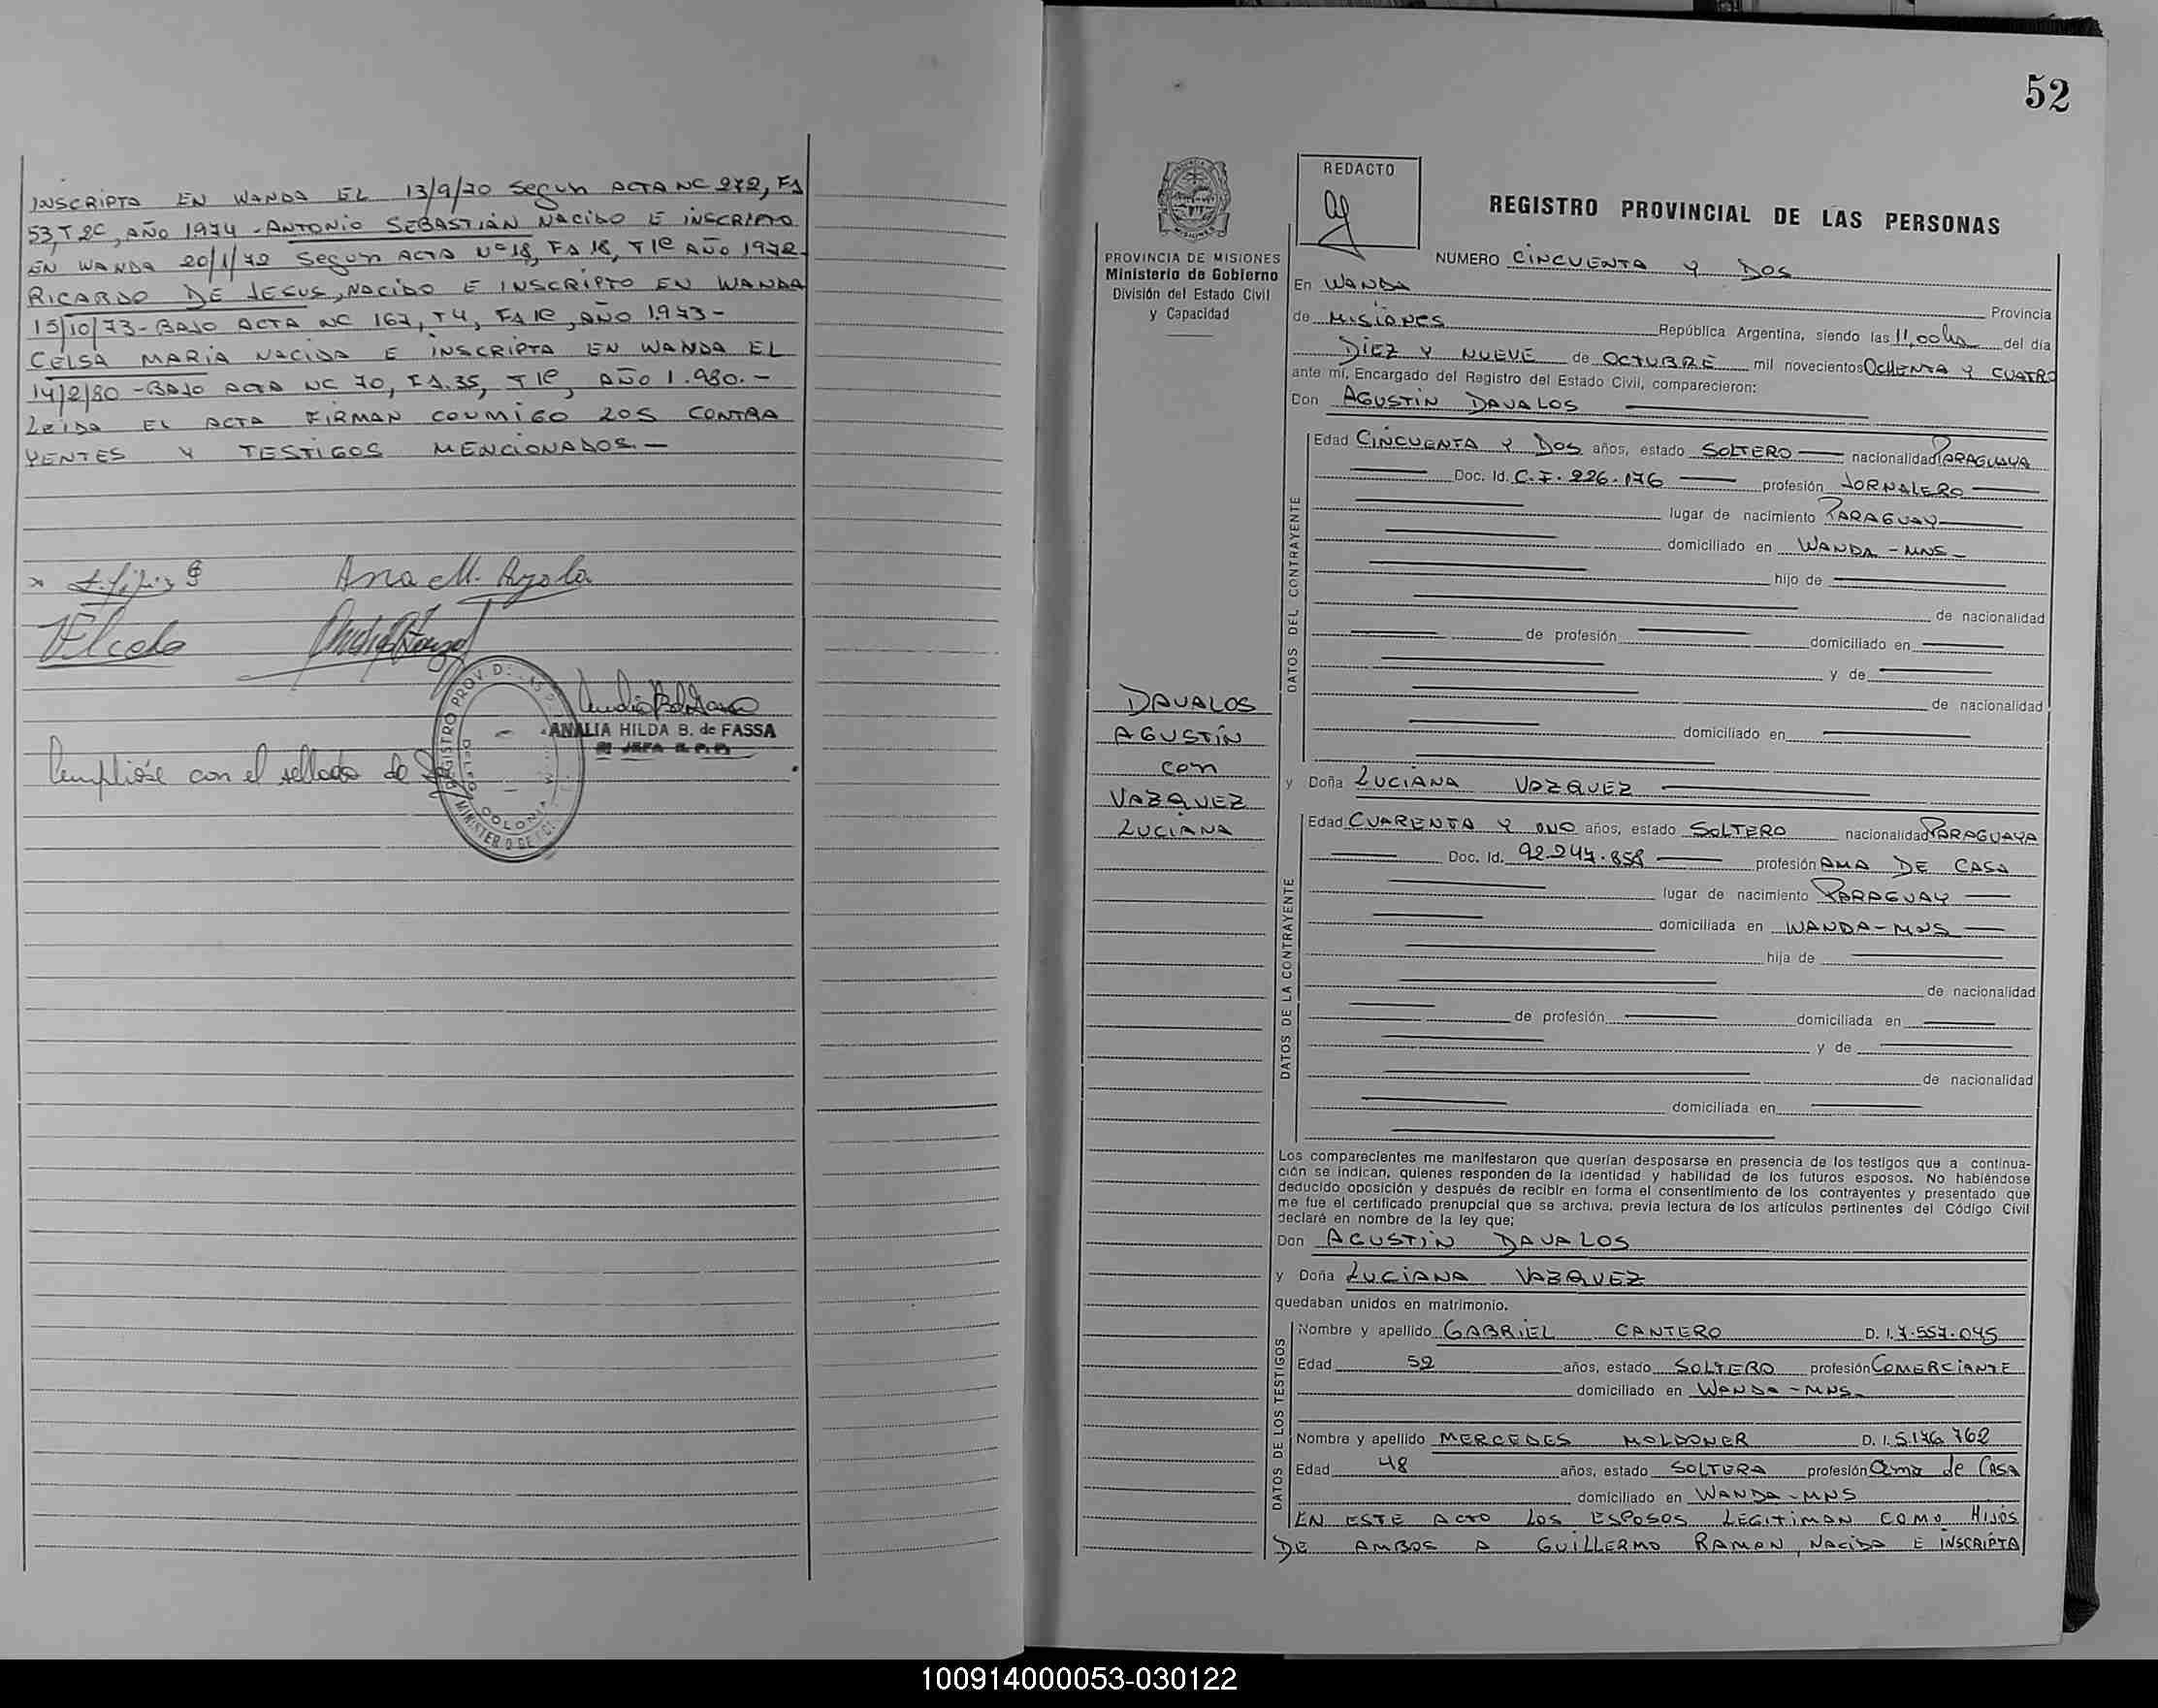 INSCRIPTA EN WANDA EL 13/9/70 Segun ACTA Nº 272, Fº
53, T 2º, AÑO 1974 - ANTONIO SEBASTIÁN NACIDO E INSCRIPTO
EN WANDA 20/1/72 Segun ACTA Nº 18, Fº 18, T 1º AÑO 1972
RICARDO DE JESUS, NACIDO E INSCRIPTO EN WANDA
15/10/73 - BAJO ACTA Nº 167, T 4, Fº 1º, AÑO 1973 -
CELSA MARIA NACIDA E INSCRIPTA EN WANDA EL
14/2/80 - BAJO ACTA Nº 70, Fº 35, T 1º, AÑO 1.980. -
LEIDA EL ACTA FIRMAN CONMIGO LOS CONTRA
YENTES Y TESTIGOS MENCIONADOS. -
Ana M. Ayala
ANALIA HILDA B. de FASSA
JEFA R.P.P.
Cumpliose con el sellado de
52
REDACTO
REGISTRO PROVINCIAL DE LAS PERSONAS
PROVINCIA DE MISIONES
Ministerio de Gobierno
División del Estado Civil
y Capacidad
NUMERO CINCUENTA Y DOS
En WANDA Provincia
de MISIONES República Argentina, siendo las 11,00 hs del día
DIEZ Y NUEVE de OCTUBRE mil novecientos OCHENTA Y CUATRO
ante mí, Encargado del Registro del Estado Civil, comparecieron:
Don AGUSTIN DAVALOS
DATOS DEL CONTRAYENTE
Edad CINCUENTA Y DOS años, estado SOLTERO nacionalidad PARAGUAYA
Doc. Id. C.I. 226.176 profesión JORNALERO
lugar de nacimiento PARAGUAY
domiciliado en WANDA - MNS -
hijo de
de nacionalidad
de profesión domiciliado en
y de
de nacionalidad
domiciliado en
DAVALOS
AGUSTIN
con
VAZQUEZ
LUCIANA
y Doña LUCIANA VAZQUEZ
DATOS DE LA CONTRAYENTE
Edad CUARENTA Y UNO años, estado SOLTERO nacionalidad PARAGUAYA
Doc. Id. 92.247.858 profesión AMA DE CASA
lugar de nacimiento PARAGUAY
domiciliada en WANDA - MNS
hija de
de nacionalidad
de profesión domiciliada en
y de
de nacionalidad
domiciliada en
Los comparecientes me manifestaron que querían desposarse en presencia de los testigos que a continua-
ción se indican, quienes responden de la identidad y habilidad de los futuros esposos. No habiéndose
deducido oposición y después de recibir en forma el consentimiento de los contrayentes y presentado que
me fue el certificado prenupcial que se archiva, previa lectura de los artículos pertinentes del Código Civil
declaré en nombre de la ley que;
Don AGUSTIN DAVALOS
y Doña LUCIANA VAZQUEZ
quedaban unidos en matrimonio.
DATOS DE LOS TESTIGOS
Nombre y apellido GABRIEL CANTERO D. I. 7.557.045
Edad 52 años, estado SOLTERO profesión COMERCIANTE
domiciliado en WANDA - MNS
Nombre y apellido MERCEDES MOLDONER D. I. 5.176.762
Edad 48 años, estado SOLTERA profesión Ama de Casa
domiciliado en WANDA - MNS
EN ESTE ACTO LOS ESPOSOS LEGITIMAN COMO HIJOS
DE AMBOS A GUILLERMO RAMON, NACIDA E INSCRIPTA
100914000053-030122